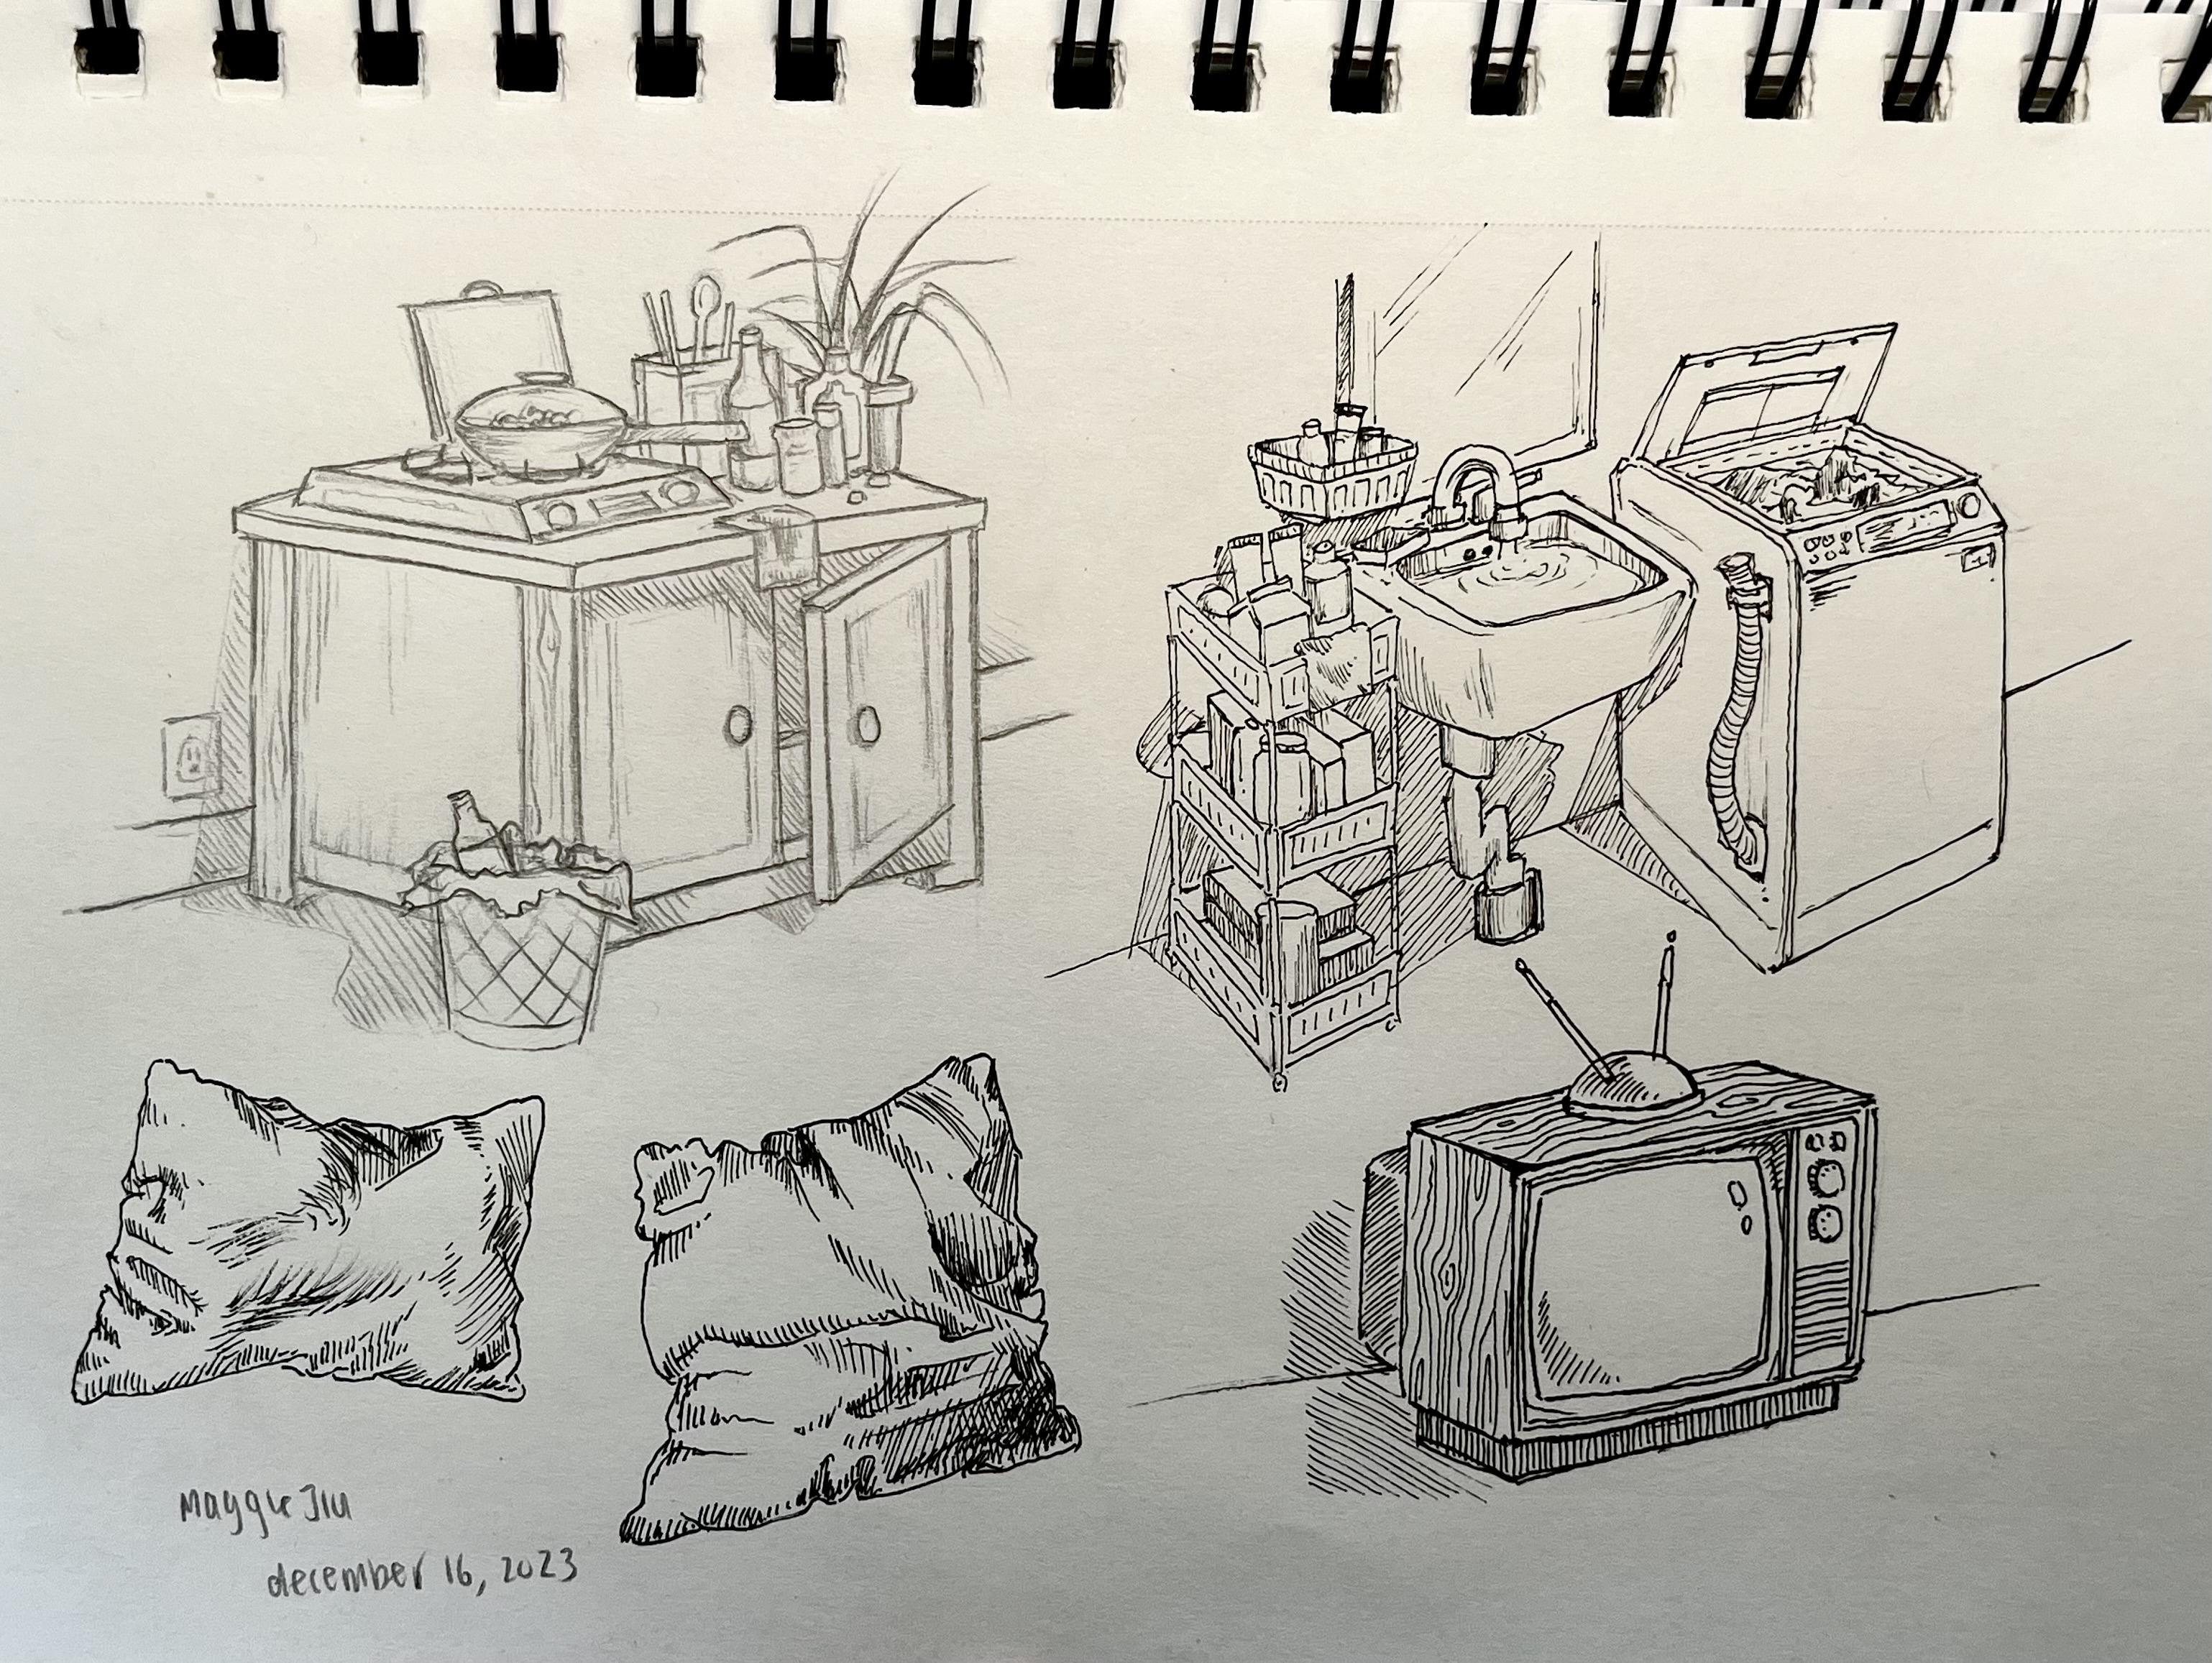 Maggie Jiu
december 16, 2023